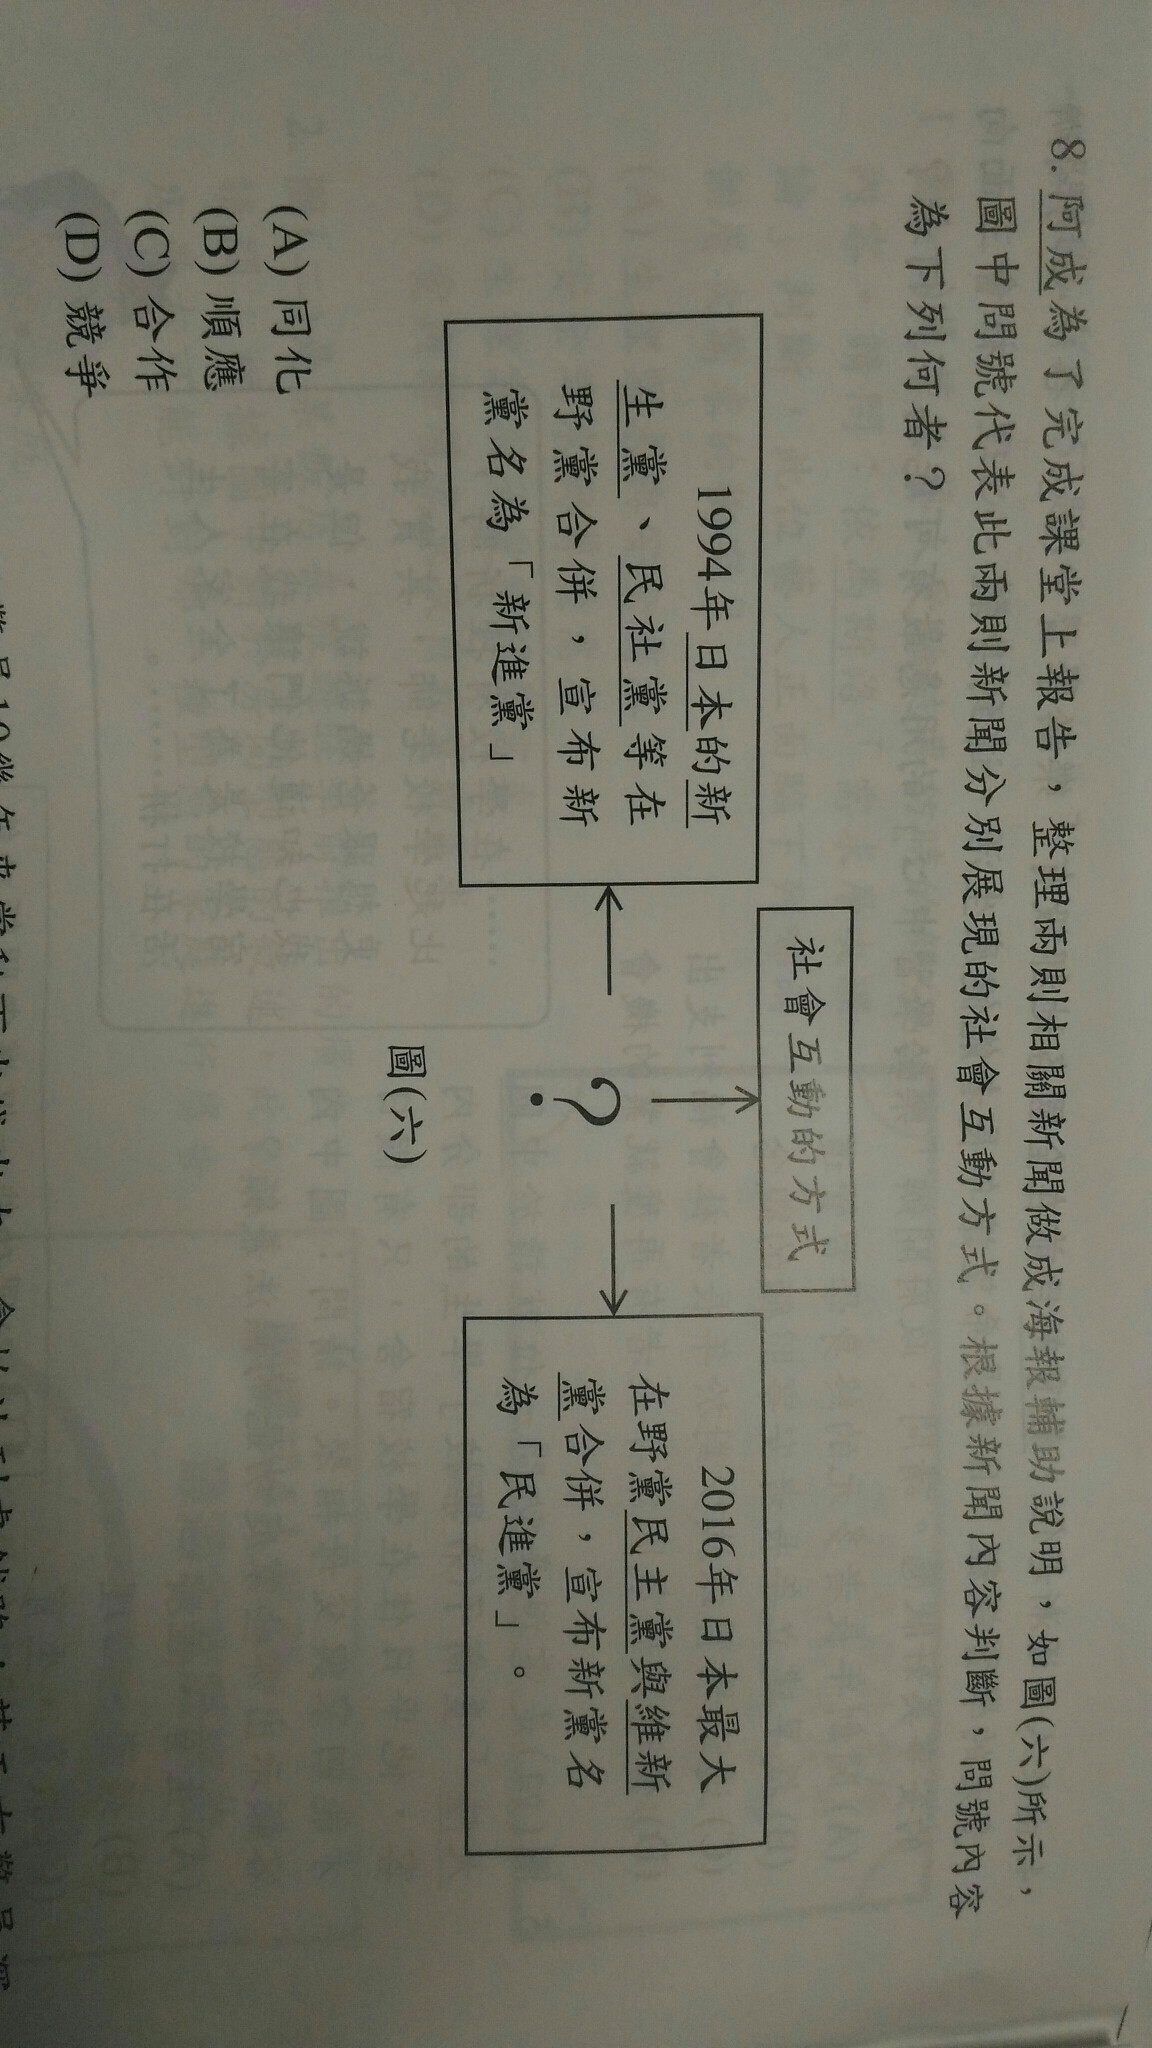 8. 阿成為了完成課堂上報告，整理兩則相關新聞做成海報輔助說明，如圖(六)所示，
圖中問號代表此兩則新聞分別展現的社會互動方式。根據新聞內容判斷，問號內容
為下列何者？
社會互動的方式
1994年日本的新
生黨、民社黨等在
野黨合併，宣布新
黨名為「新進黨」
？
2016年日本最大
在野黨民主黨與維新
黨合併，宣布新黨名
為「民進黨」。
圖(六)
(A) 同化
(B) 順應
(C) 合作
(D) 競爭